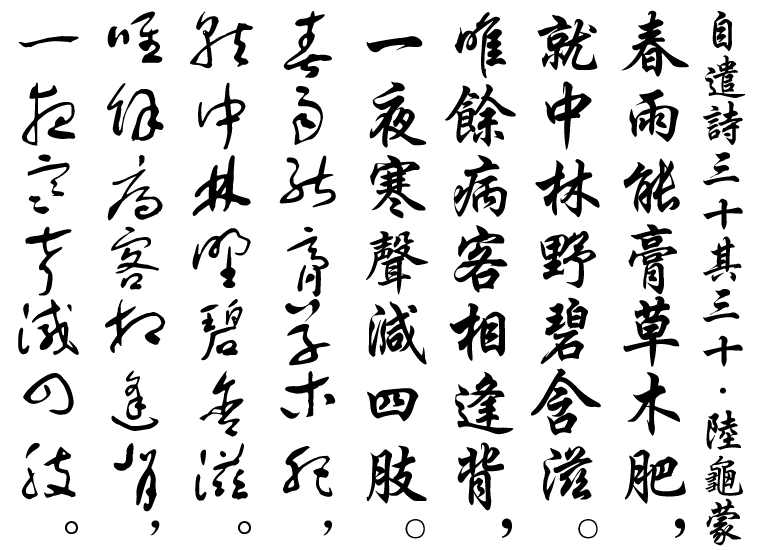 自遣詩三十其三十·陸龜蒙
春雨能膏草木肥，
就中林野碧含滋。
唯餘病客相逢背，
一夜寒聲減四肢。
春雨能膏草木肥，
就中林野碧含滋。
唯餘病客相逢背，
一夜寒聲減四肢。